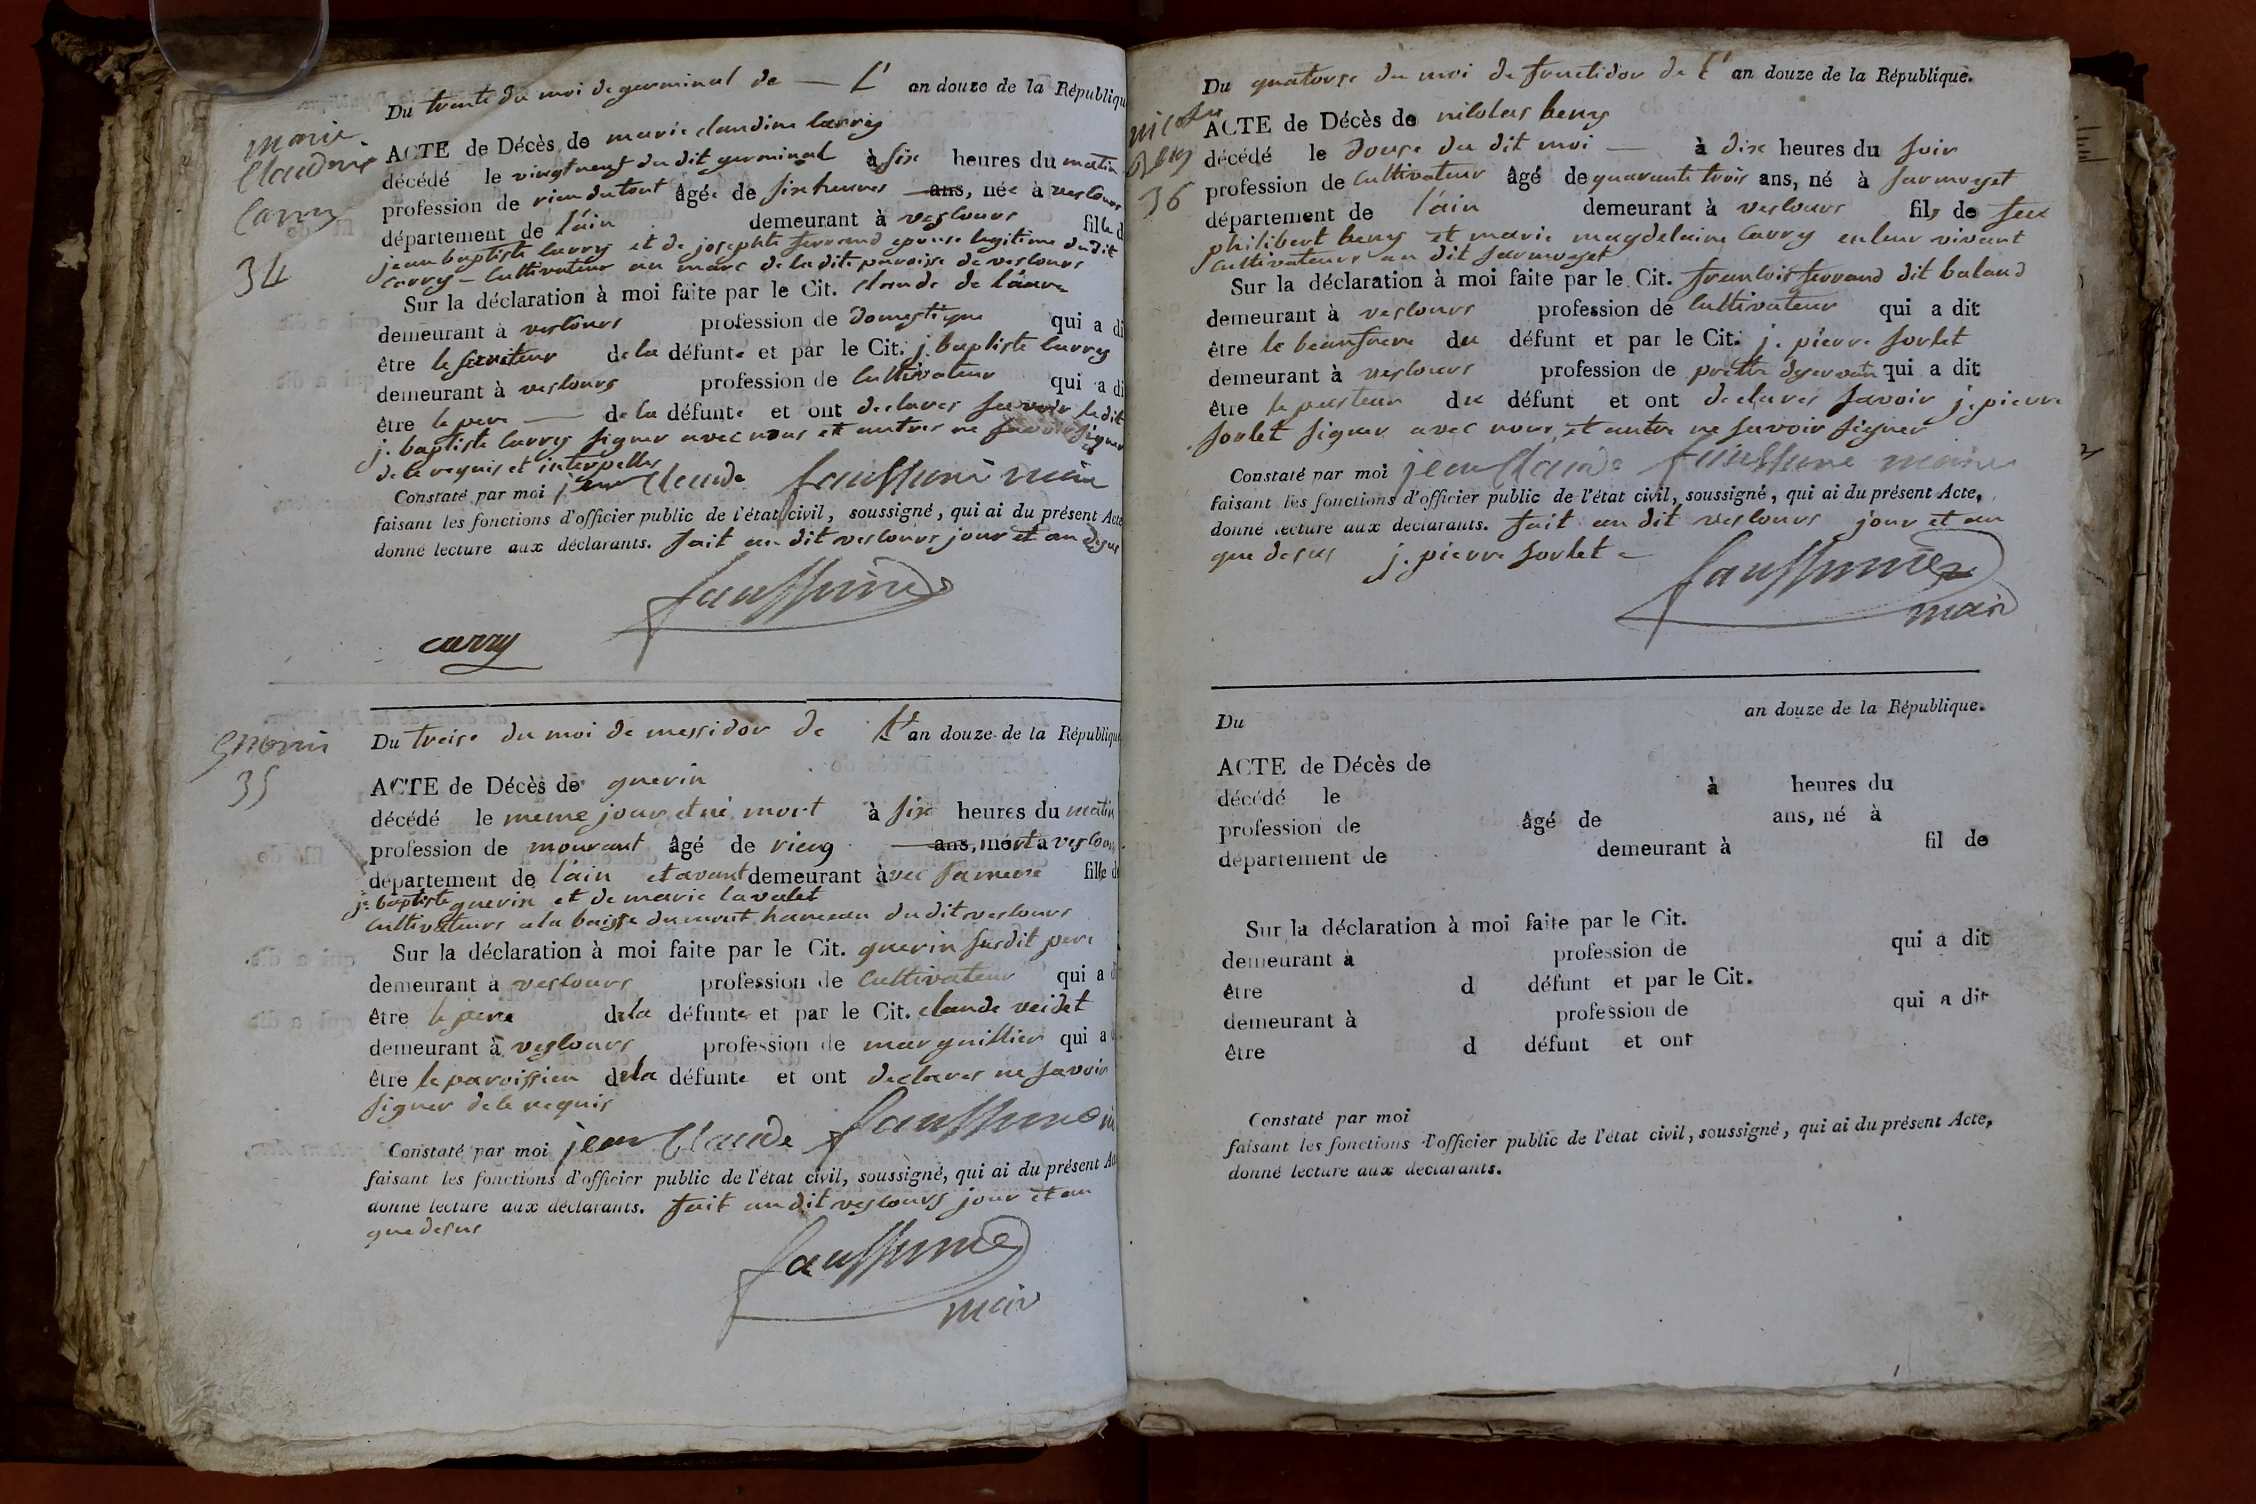 Du trente du moi de germinal de — L' an douze de la République
marie
Claudine
Carry
34
ACTE de Décès de marie claudine carry
décédé le vingt neuf du dit germinal à six heures du matin
profession de rien du tout âgée de six heures ans, née à veslours
département de l'ain demeurant à veslours fille d
jean baptiste carry et de josephte ferrand epouse legitime du dit
carry – cultivateur au marc de la dite paroisse de veslours
Sur la déclaration à moi faite par le Cit. claude de
demeurant à veslours profession de domestique qui a di
être le serviteur de la défunte et par le Cit. j. baptiste carry
demeurant à veslours profession de cultivateur qui a di
être le pere — de la défunte et ont declares savoir le dit
j. baptiste carry signer avec nous et autres ne savoir signer
de le requis et interpelles
Constaté par moi jean Claude fausshurié maire
faisant les fonctions d'officier public de l'état civil, soussigné, qui ai du présent Acte
donné lecture aux déclarants. fait au dit veslours jour et an desus
carry
Du treise du moi de messidor de L' an douze de la République
guerin
35
ACTE de Décès de guerin
décédé le meme jour et né mort à six heures du matin
profession de mourant âgé de rieng ans, mort a veslours
département de l'ain et avant demeurant avec sa mere fille de
j. baptiste guerin et de marie lavalet
cultivateurs a la baisse du mont hameau du dit veslours
Sur la déclaration à moi faite par le Cit. guerin susdit pere
demeurant à veslours profession de cultivateur qui a d
être le pere de la défunte et par le Cit. claude veidet
demeurant à veslours profession de marguillier qui a
être le paroissien de la défunte et ont declares ne savoir
signer de le requis
Constaté par moi jean Claude
faisant les fonctions d'officier public de l'état civil, soussigné, qui ai du présent Ac
donné lecture aux déclarants. fait au dit veslours jour et an
que desus
mair
Du quatorse du moi de fructidor de L' an douze de la République.
nicolas
beny
36
ACTE de Décès de nicolas beny
décédé le douse du dit moi — à dix heures du soir
profession de cultivateur âgé de quarante trois ans, né à sarmoyet
département de l'ain demeurant à veslours fils de feu
philibert beny et marie magdelaine carry en leur vivant
cultivateurs au dit sarmoyet
Sur la déclaration à moi faite par le Cit. francois ferrand dit baland
demeurant à veslours profession de cultivateur qui a dit
être le beaufrere du défunt et par le Cit. j. pierre sorlet
demeurant à veslours profession de prettre deservan qui a dit
être le pasteur du défunt et ont declares savoir j. pierre
sorlet signer avec nous et autre ne savoir signer
Constaté par moi jean Claude maire
faisant les fonctions d'officier public de l'état civil, soussigné, qui ai du présent Acte,
donné lecture aux déclarants. fait au dit veslours jour et an
que desus j. pierre sorlet
mair
Du an douze de la République.
ACTE de Décès de
décédé le à heures du
profession de âgé de ans, né à
département de demeurant à fil de
Sur la déclaration à moi faite par le Cit.
demeurant à profession de qui a dit
être d défunt et par le Cit.
demeurant à profession de qui a dit
être d défunt et ont
Constaté par moi
faisant les fonctions d'officier public de l'état civil, soussigné, qui ai du présent Acte,
donné lecture aux déclarants.